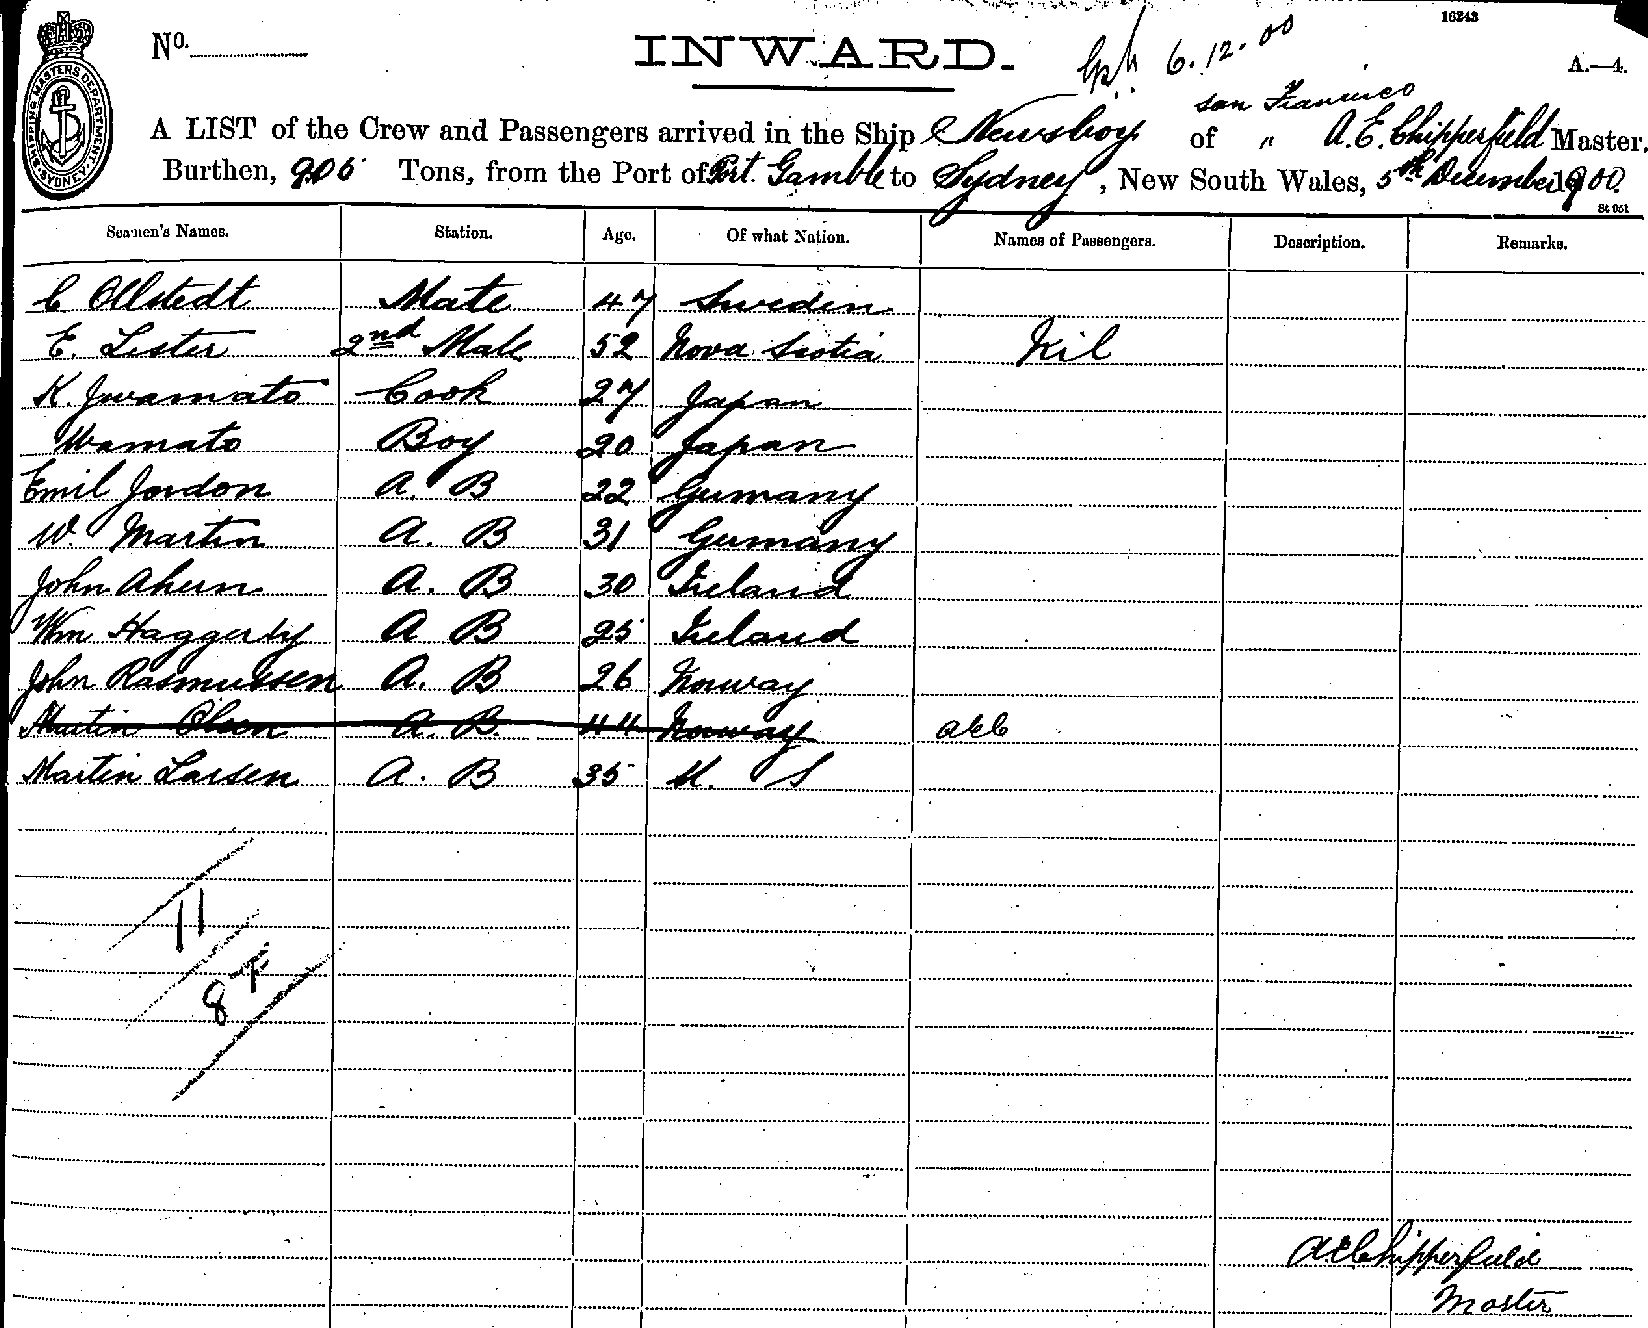 16243
No.
INWARD.
6.12.00
A.—4.
SHIPPING MASTERS DEPARTMENT. SYDNEY.
San Francisco
A LIST of the Crew and Passengers arrived in the Ship Newsboy of " A. E. Chipperfield Master,
Burthen, 906 Tons, from the Port of Port Gamble to Sydney, New South Wales, 5th December 1900.
St 051
Seamen's Names. Station. Age. Of what Nation. Names of Passengers. Description. Remarks.
C Ollstedt Mate 47 Sweden
E. Lester 2nd Mate 52 Nova Scotia Nil
K. Jwamato Cook 27 Japan
Wamato Boy 20 Japan
Emil Jordon A. B 22 Germany
W. Martin A. B 31 Germany
John Ahern A. B 30 Ireland
Wm Haggerty A B 25 Ireland
John Rasmussen A. B 26 Norway
Martin Olsen A. B. 44 Norway AEC
Martin Larsen A. B 35 U. S
11
8
A E Chipperfield
Master